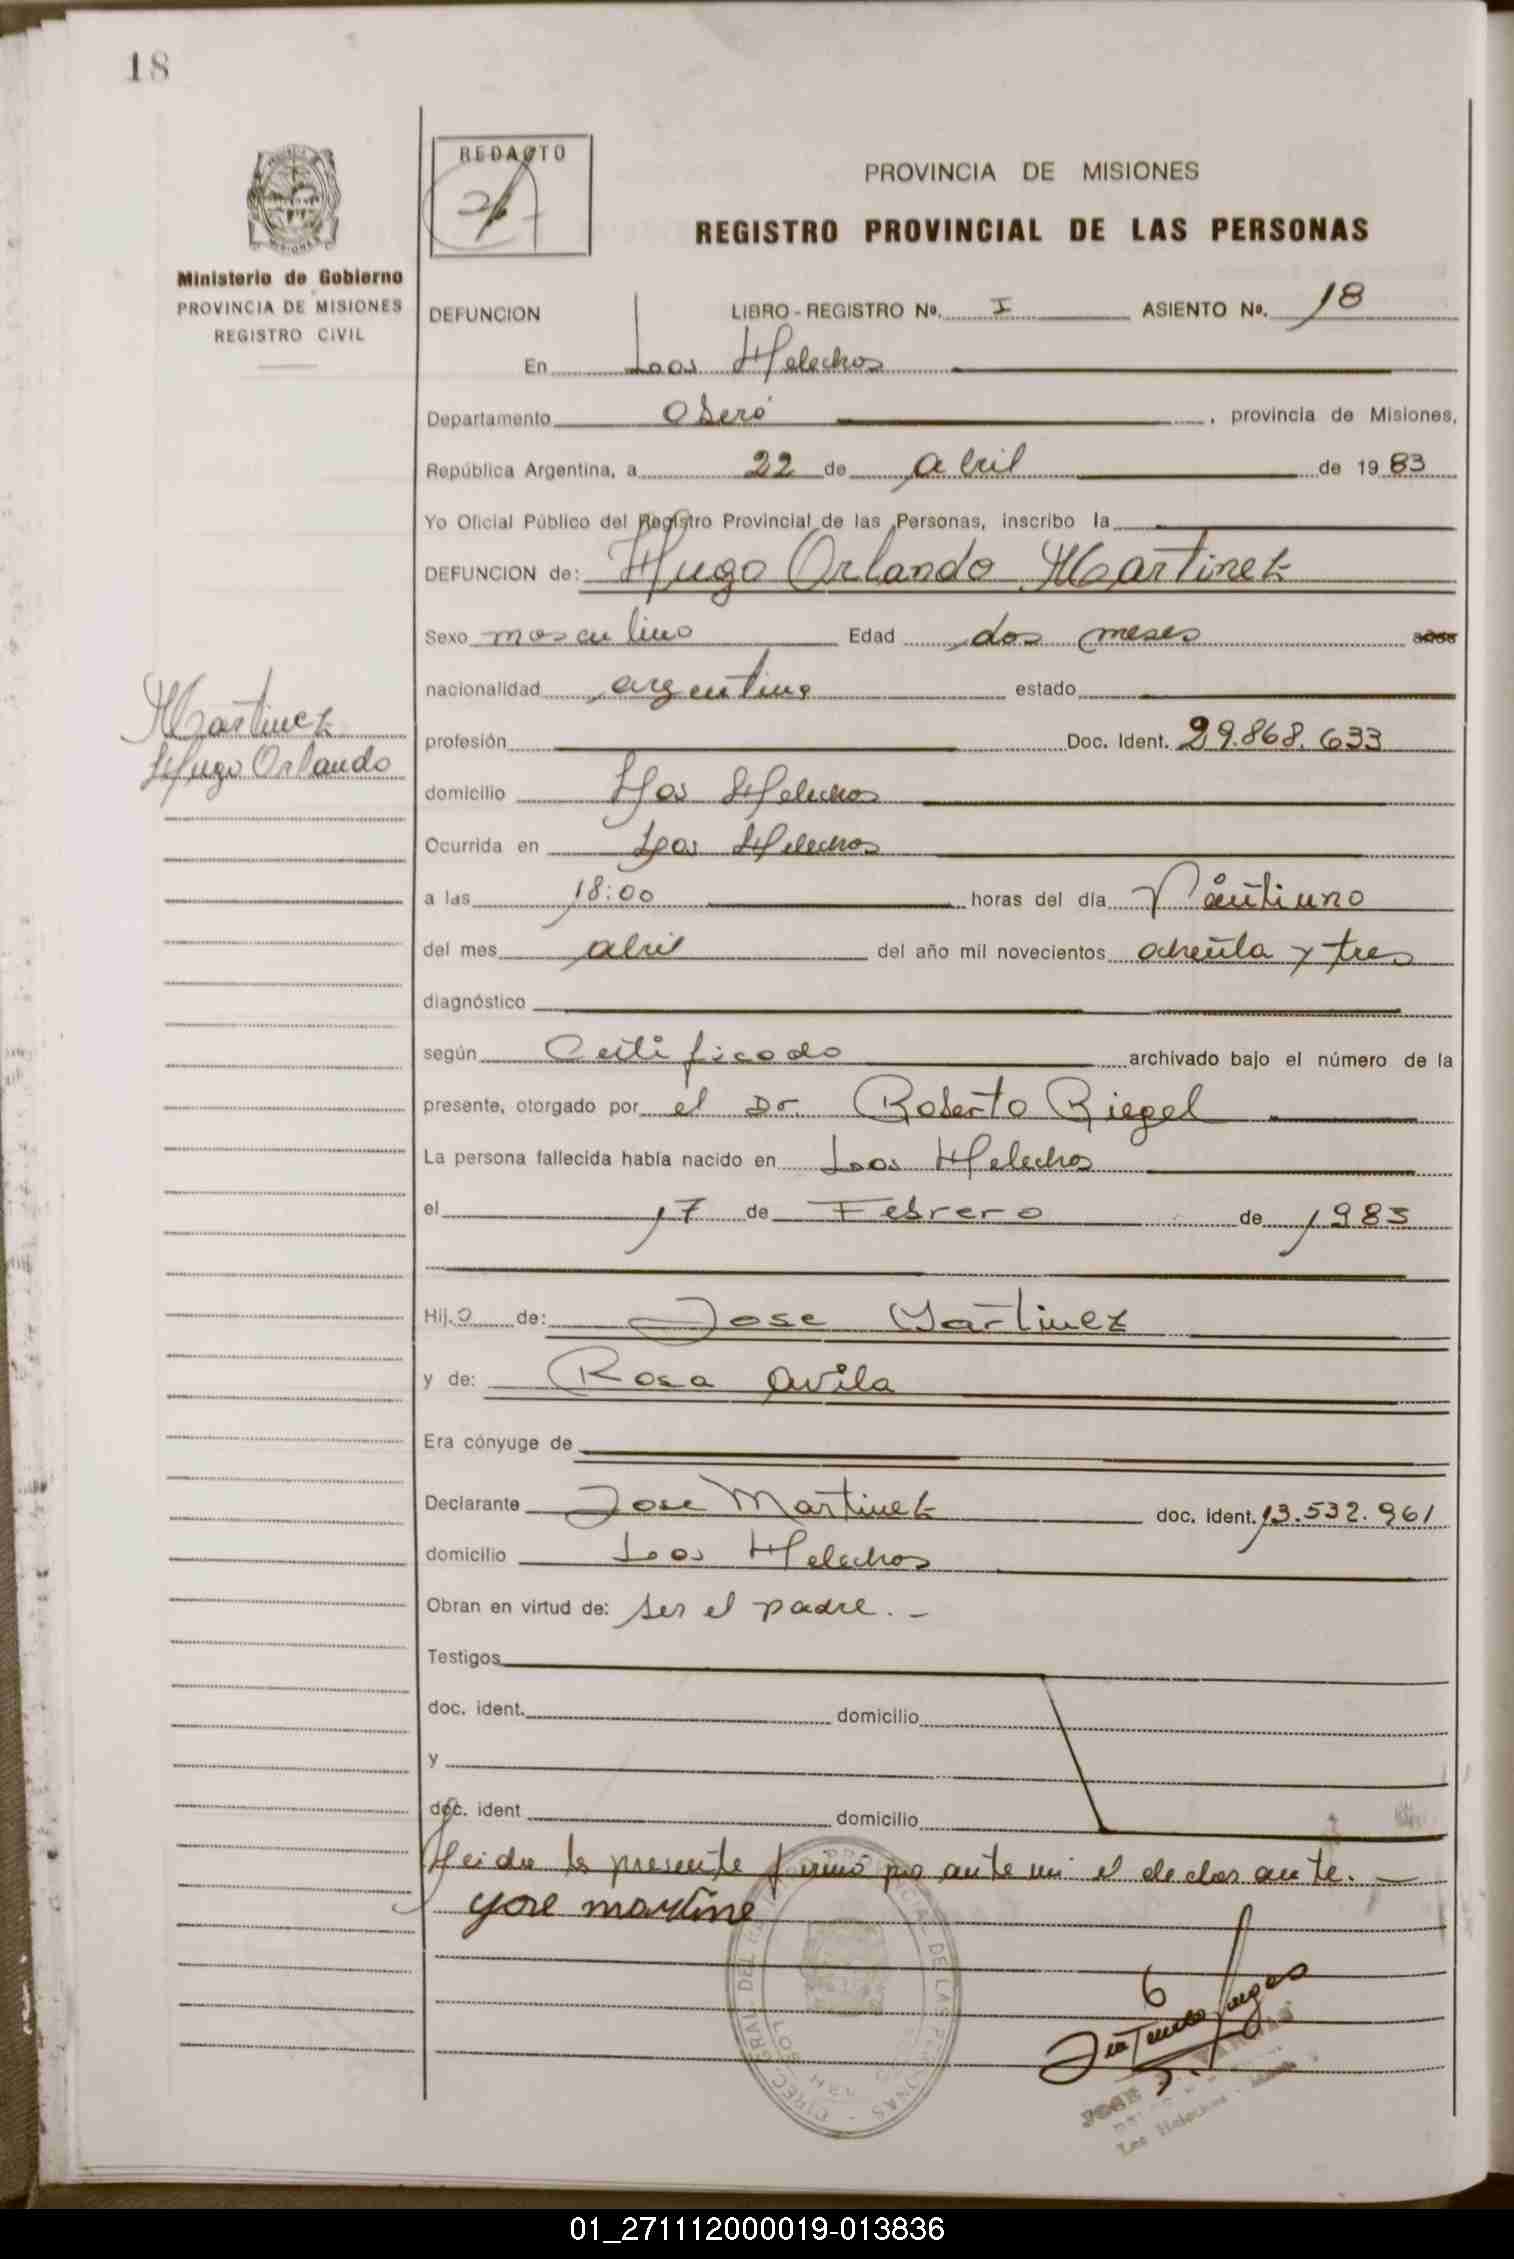 18
REDACTO
PROVINCIA DE MISIONES
REGISTRO PROVINCIAL DE LAS PERSONAS
Ministerio de Gobierno
PROVINCIA DE MISIONES
REGISTRO CIVIL
DEFUNCION LIBRO - REGISTRO Nº. I ASIENTO Nº. 18
En Los Helechos
Departamento Oberá, provincia de Misiones,
República Argentina, a 22 de abril de 1983
Yo Oficial Público del Registro Provincial de las Personas, inscribo la
DEFUNCION de: Hugo Orlando Martinez
Sexo masculino Edad dos meses años
nacionalidad argentina estado
Martinez
Hugo Orlando
profesión Doc. Ident. 29.868.633
domicilio Los Helechos
Ocurrida en Los Helechos
a las 18:00 horas del día Veintiuno
del mes abril del año mil novecientos ochenta y tres
diagnóstico
según Certificado archivado bajo el número de la
presente, otorgado por el Dr. Roberto Riegel
La persona fallecida había nacido en Los Helechos
el 17 de Febrero de 1983
Hijo de: Jose Martinez
y de: Rosa Avila
Era cónyuge de
Declarante Jose Martinez doc. ident. 13.532.961
domicilio Los Helechos
Obran en virtud de: ser el padre. -
Testigos
doc. ident. domicilio
y
doc. ident domicilio
Leida la presente firmó por ante mi el declarante. -
yose martine
DEL REGISTRO PROVINCIAL DE LAS PERSONAS
JOSE VARGAS
Los Helechos - Misiones
01_271112000019-013836